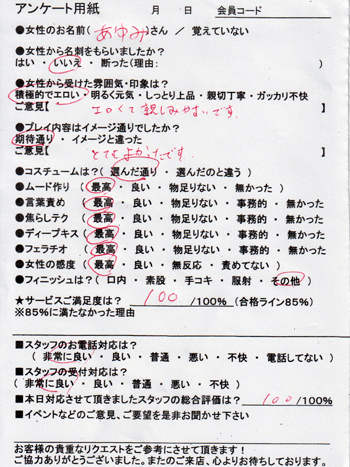 アンケート用紙　　月　　日　会員コード
●女性のお名前( あゆみ )さん / 覚えていない
●女性から名刺をもらいましたか?
はい・いいえ・断った(理由:　　　)
●女性から受けた雰囲気・印象は?
積極的でエロい・明るく元気・しっとり上品・親切丁寧・ガッカリ不快
ご意見【 エロくて親しみやすいです。
●プレイ内容はイメージ通りでしたか?
期待通り ・ イメージと違った
ご意見【 とてもよかったです。
●コスチュームは?( 選んだ通り ・ 選んだのと違う )
●ムード作り ( 最高 ・ 良い ・ 物足りない ・ 無かった )
●言葉責め ( 最高 ・ 良い ・ 物足りない ・ 事務的 ・ 無かった )
●焦らしテク ( 最高 ・ 良い ・ 物足りない ・ 事務的 ・ 無かった )
●ディープキス ( 最高 ・ 良い ・ 物足りない ・ 事務的 ・ 無かった )
●フェラチオ ( 最高 ・ 良い ・ 物足りない ・ 事務的 ・ 無かった )
●女性の感度 ( 最高 ・ 良い ・ 無反応 ・ 責めてない )
●フィニッシュは?( 口内 ・ 素股 ・ 手コキ ・ 服射 ・ その他 )
★サービスご満足度は? 100 /100% (合格ライン85%)
※85%に満たなかった理由
■スタッフのお電話対応は?
( 非常に良い ・ 良い ・ 普通 ・ 悪い ・ 不快 ・ 電話してない )
■スタッフの受付対応は?
( 非常に良い ・ 良い ・ 普通 ・ 悪い ・ 不快 )
■本日対応させて頂きましたスタッフの総合評価は? 100 /100%
■イベントなどのご意見、ご要望を是非お聞かせ下さい
お客様の貴重なリクエストをご参考にさせて頂きます!
ご協力ありがとうございました。またのご来店、心よりお待ちしております。